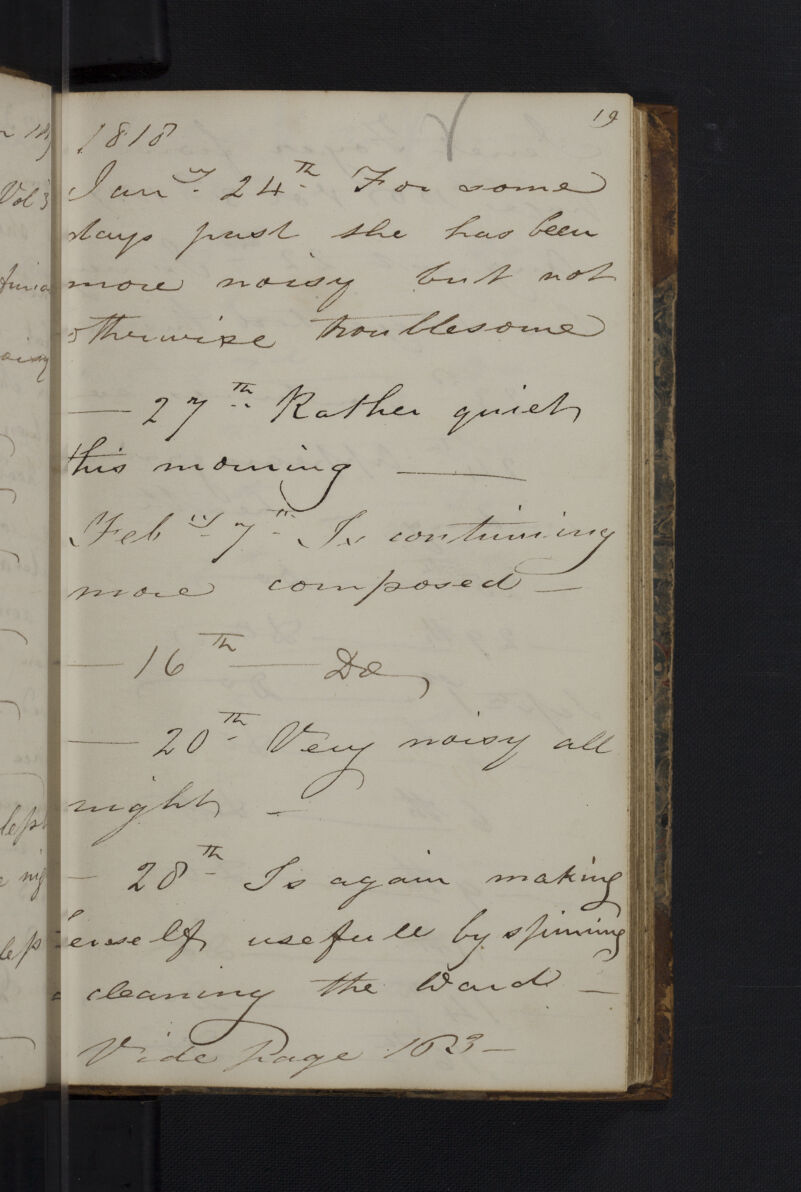 19
1818
Jan^ry. 24^th. For some
days past she has been
more noisy but not
otherwise troublesome
— 27^th. Rather quiet
this morning —
Feb^ry. 7^th. Is continuing
more composed —
— 16^th — Do
— 20^th. Very noisy all
night —
— 28^th. Is again making
herself usefull by spinning
cleaning the Ward —
Vide page 163 —